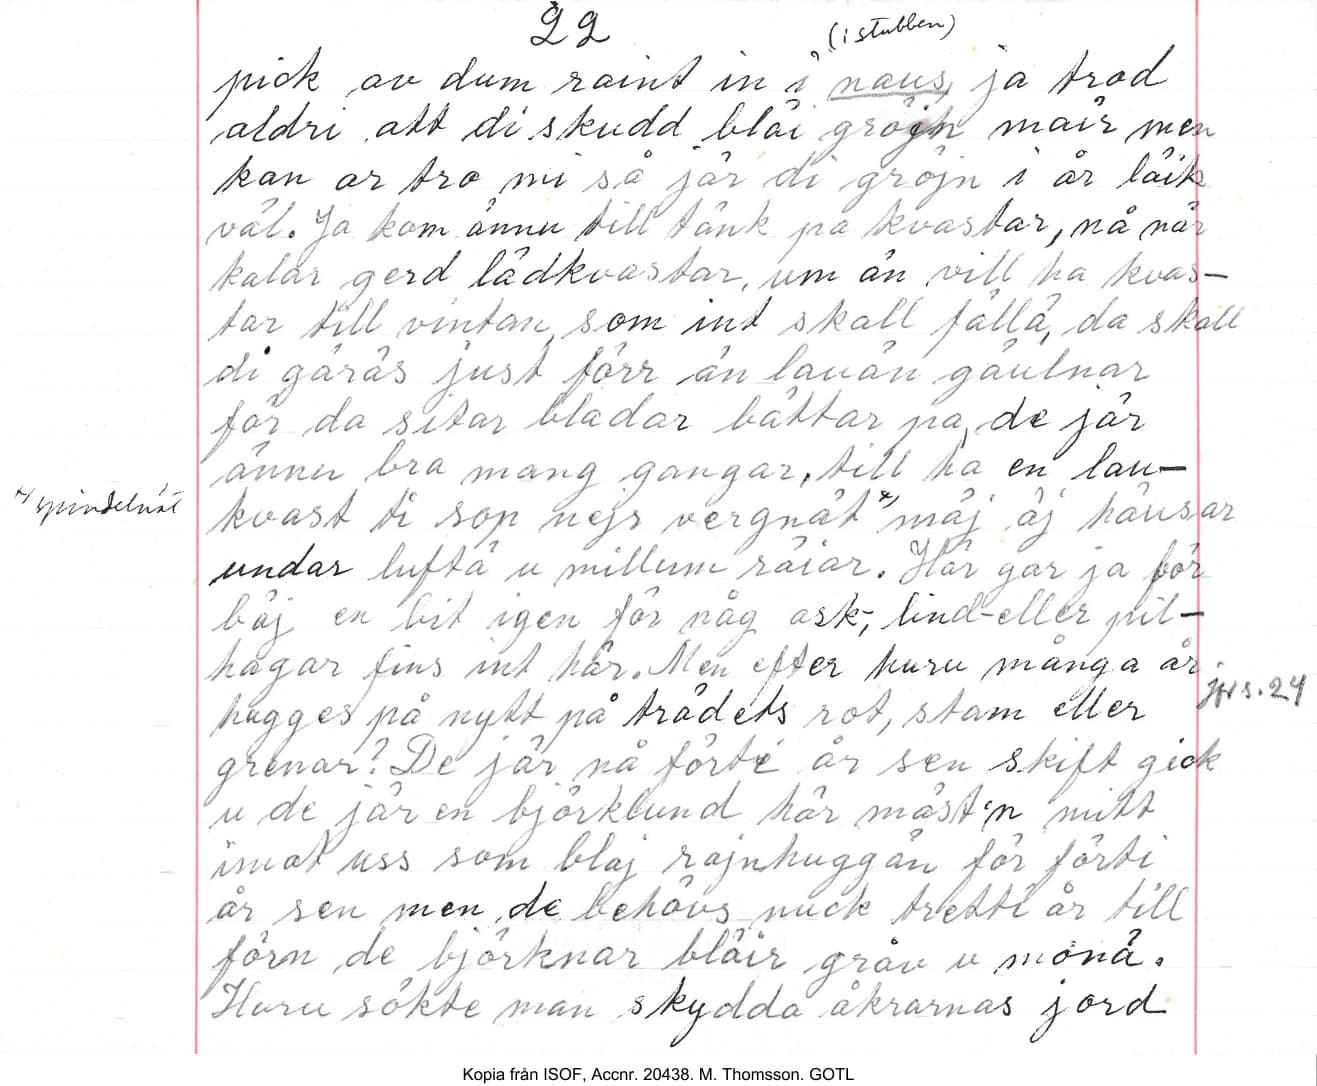 22
(i stubben)
pick av dum raint in i naus, ja trod
aldri att di skudd bläi gröjn mair men
kan ar tro mi så jär di gröjn i år läik
väl. Ja kom ännu till tänk pa kvastar, nå när
kalar gerd lädkvastar, um än vill ha kvas-
tar till vintan, som int skall fällä, da skall
di gäräs just förr än lauän gäulnar
för da sitar bladar bättar pa, de jär
ännu bra mang gangar, till ha en lau-
x) spindelnät
kvast ti sop nejr vergnät x) mäj äj häusar
undar luftä u millum räiar. Här gar ja för
bäj en bit igen för någ ask-, lind- eller pil-
hagar fins int här. Men efter huru många år
jfr s. 24
hugges på nytt på trädets rot, stam eller
grenar? De jär nå förti år sen skift gick
u de jär en björklund här mäst'n mitt
imot uss som blaj rajnhuggän för förti
år sen men de behövs nuck tretti år till
förn de björknar bläir gräv u mönä.
Huru sökte man skydda åkrarnas jord
Kopia från ISOF, Accnr. 20438. M. Thomsson. GOTL